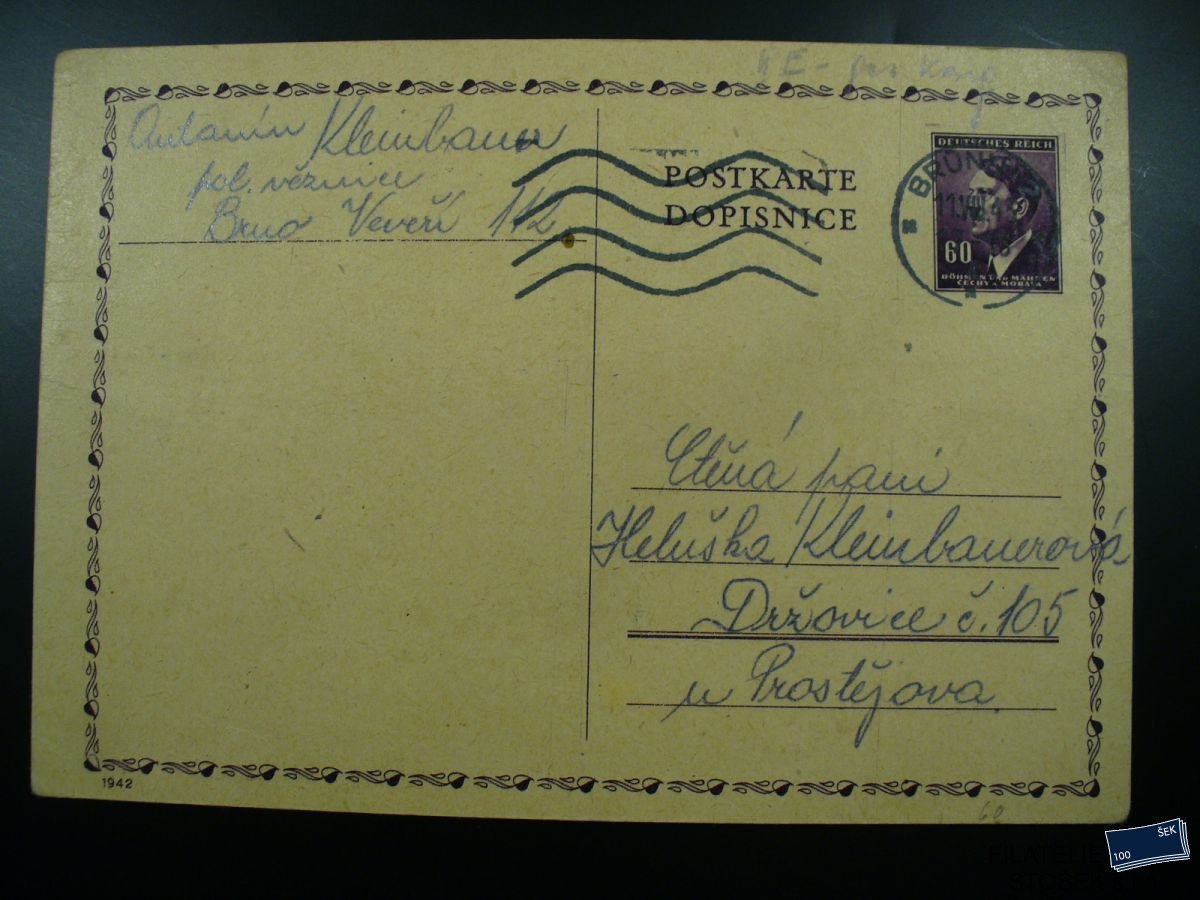 Antonín Kleinbauer
pol. věznice
Brno Veveří 112
POSTKARTE
DOPISNICE
DEUTSCHES REICH
60
BÖHMEN UND MÄHREN
ČECHY A MORAVA
BRÜNN
Ctěná paní
Heluška Kleinbauerová
Držovice č. 105
u Prostějova.
1942
60
100 ŠEK
FILATELIE